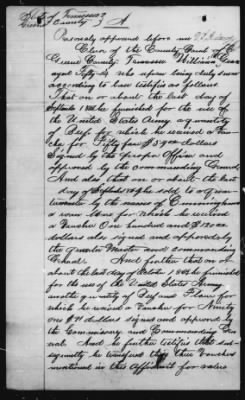 State of Tennessee }
Greene County } A
Personaly appeared before me
Clerk of the County Court of
Greene County Tennessee William
aged Fifty who upon being duly sworn
according to law testifies as follows
That on or about the last day of
September 1863 he furnished for the use of
the United States Army a quantity
of Beef for which he received a Vou-
cher for Fifty four $ dollars
Signed by the proper Officer and
approved by the commanding General
And also that on or about the last
day of September 1863 he sold to a quar-
termaster by the name of Cunningham
a  for which he received
a Voucher One hundred and $ dollars
dollars also signed and approved by
the quarter Master and Commanding
General. And further that on or
about the last day of October 1863 he furnished
for the use of the United States Army
another quantity of Beef and Flour for
which he received a Voucher for Ninety
one $ dollars signed and approved by
the Commissary and Commanding Gen-
eral. And he further testifies that sub-
sequently he transfered these three Vouchers
mentioned in this Affidavit for value